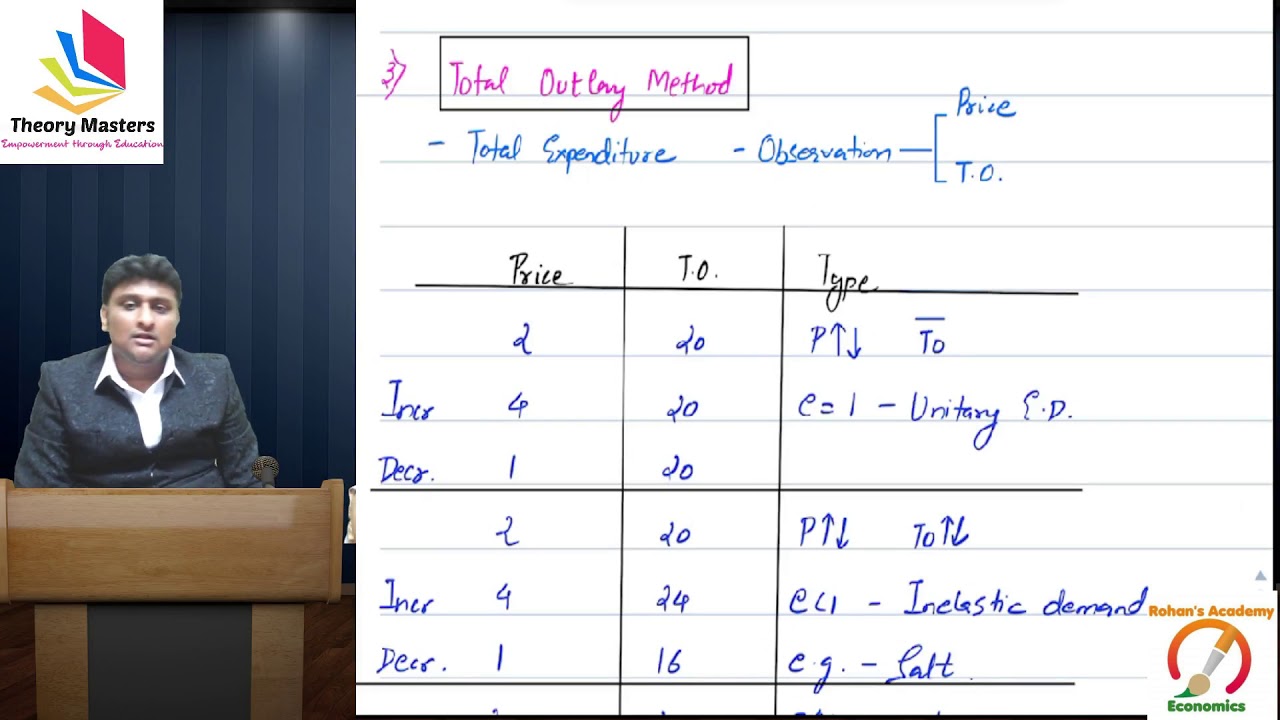 Theory Masters
Empowerment through Education
3) Total Outlay Method
- Total Expenditure - Observation Price
T.O.
Price T.O. Type
2 20 P↑↓ T̅o̅
Incr 4 20 e=1 - Unitary E.D.
Decr. 1 20
2 20 P↑↓ To↑↓
Incr 4 24 e<1 - Inelastic demand
Decr. 1 16 e.g. - Salt.
Rohan's Academy
Economics